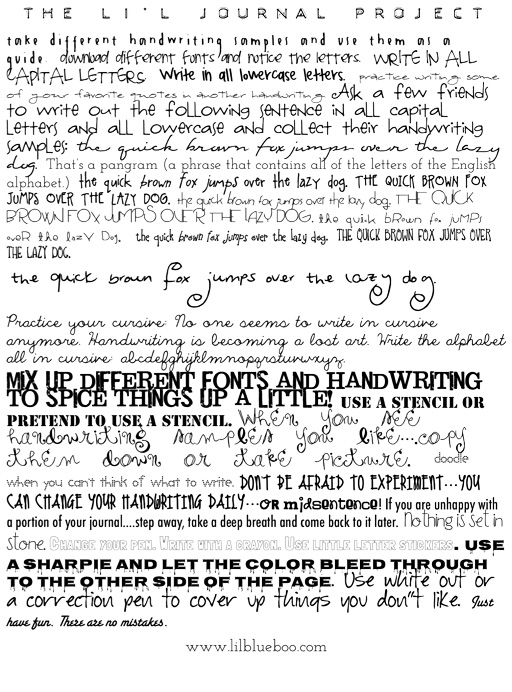 THE LI'L JOURNAL PROJECT
take different handwriting samples and use them as a
guide. download different fonts and notice the letters. WRITE IN ALL
CAPITAL LETTERS. Write in all lowercase letters. practice writing some
of your favorite quotes in another handwriting. Ask a few friends
to write out the following sentence in all capital
letters and all lowercase and collect their handwriting
samples: the quick brown fox jumps over the lazy
dog. That's a pangram (a phrase that contains all of the letters of the English
alphabet.) the quick brown fox jumps over the lazy dog. THE QUICK BROWN FOX
JUMPS OVER THE LAZY DOG. the quick brown fox jumps over the lazy dog. THE QUICK
BROWN FOX JUMPS OVER THE LAZY DOG. the quick brown fox jumps
over the lazy Dog. the quick brown fox jumps over the lazy dog. THE QUICK BROWN FOX JUMPS OVER
THE LAZY DOG.
the quick brown fox jumps over the lazy dog.
Practice your cursive: No one seems to write in cursive
anymore. Handwriting is becoming a lost art. Write the alphabet
all in cursive: abcdefghijklmnopqrstuvwxyz.
MIX UP DIFFERENT FONTS AND HANDWRITING
TO SPICE THINGS UP A LITTLE! USE A STENCIL OR
PRETEND TO USE A STENCIL. When you see
handwriting samples you like...copy
them down or take picture. doodle
when you can't think of what to write. DON'T BE AFRAID TO EXPERIMENT...YOU
CAN CHANGE YOUR HANDWRITING DAILY...OR midsentence! If you are unhappy with
a portion of your journal....step away, take a deep breath and come back to it later. Nothing is set in
stone. Change your pen. Write with a crayon. Use little letter stickers. USE
A SHARPIE AND LET THE COLOR BLEED THROUGH
TO THE OTHER SIDE OF THE PAGE. Use white out or
a correction pen to cover up things you don"t like. Just
have fun. There are no mistakes.
www.lilblueboo.com